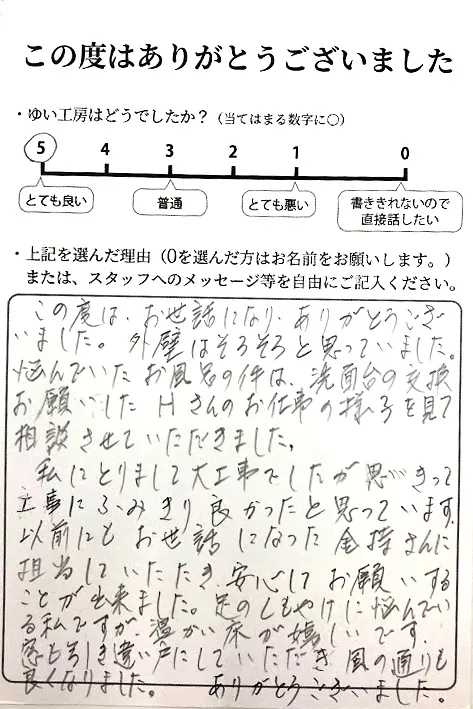 この度はありがとうございました
・ゆい工房はどうでしたか？（当てはまる数字に○）
5 4 3 2 1 0
とても良い 普通 とても悪い 書ききれないので
直接話したい
・上記を選んだ理由（0を選んだ方はお名前をお願いします。）
または、スタッフへのメッセージ等を自由にご記入ください。
この度は、お世話になり、ありがとうござ
いました。外壁はそろそろと思っていました。
悩んでいたお風呂の件は、洗面台の交換
お願いした Hさんのお仕事の様子を見て
相談させていただきました。
私にとりまして大工事でしたが思いきって
工事にふみきり良かったと思っています。
以前にもお世話になった金持さんに
担当していただき、安心してお願いする
ことが出来ました。足のしもやけに悩んでい
る私ですが、温かい床が嬉しいです。
窓も引き違い戸にしていただき風の通りも
良くなりました。ありがとうございました。